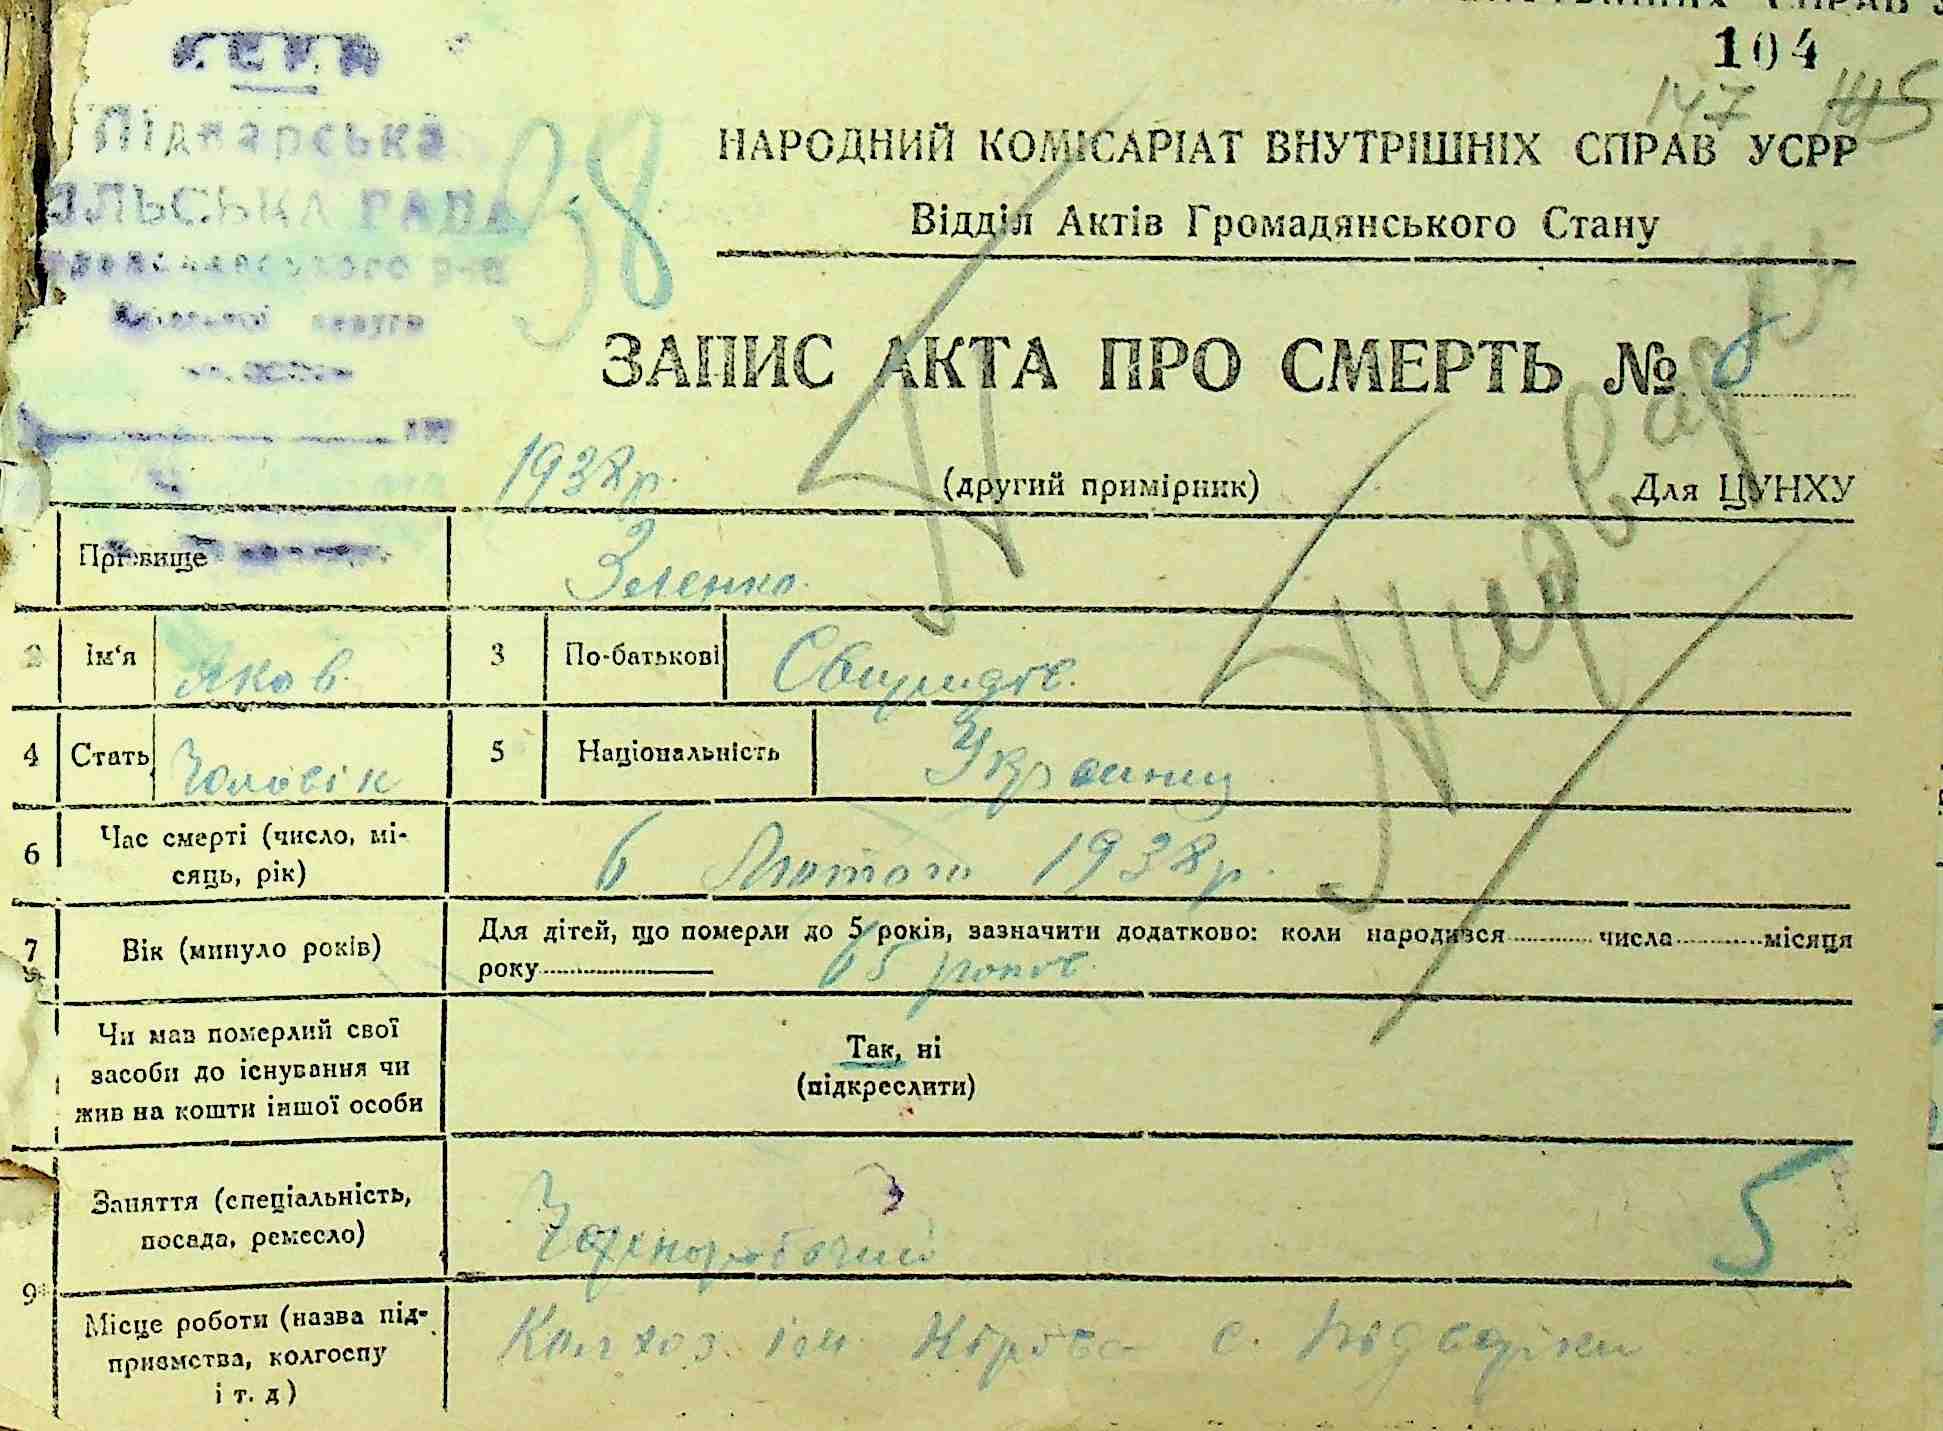 104
147 145
УСРР
Підварська
СІЛЬСЬКА РАДА
НАРОДНИЙ КОМІСАРІАТ ВНУТРІШНІХ СПРАВ УСРР
Відділ Актів Громадянського Стану
38
ЗАПИС АКТА ПРО СМЕРТЬ № 8
1938 р.
(другий примірник) Для ЦУНХУ
Прізвище Зленко
2 Ім'я Яков 3 По-батькові Свиридов.
4 Стать Чоловік 5 Національність Украинец
6 Час смерті (число, мі-
сяць, рік) 6 Лютого 1938 р.
7 Вік (минуло років) Для дітей, що померли до 5 років, зазначити додатково: коли народився числа місяця
року 65 років
Чи мав померлий свої
засоби до існування чи
жив на кошти іншої особи
Так, ні
(підкреслити)
Заняття (спеціальність,
посада, ремесло) Чорноробочий
5
9
Місце роботи (назва під-
приємства, колгоспу
і т. д) Колхоз ім. Кірова с. Підварки